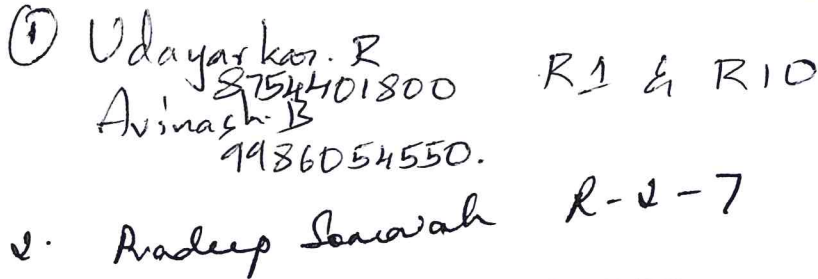 ① Udayarkar. R
8754401800 R1 & R10
Avinash. B
9986054550.
2. Pradeep R-2-7